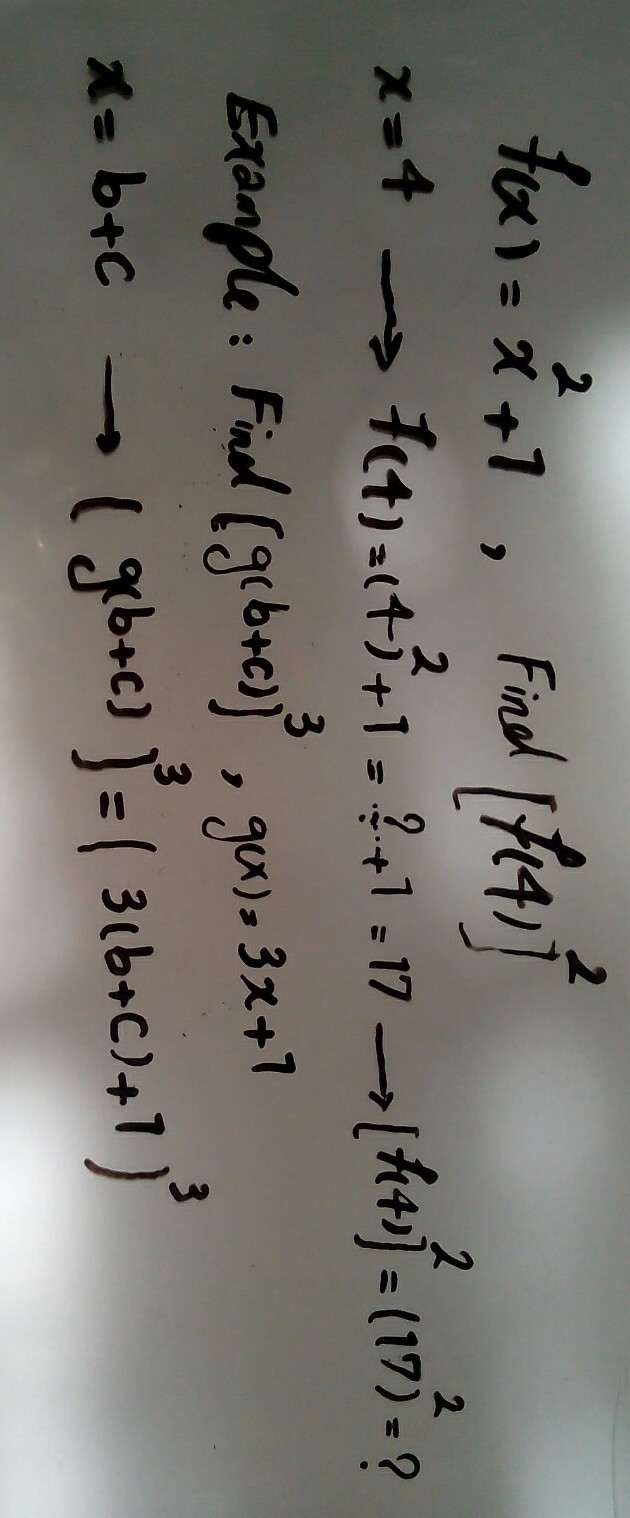 f(x) = x² + 1 , Find [f(4)]²
x = 4 → f(4) = (4)² + 1 = ? + 1 = 17 → [f(4)]² = (17)² = ?
Example : Find [g(b+c)]³ , g(x) = 3x + 1
x = b+c → [g(b+c)]³ = (3(b+c)+1)³